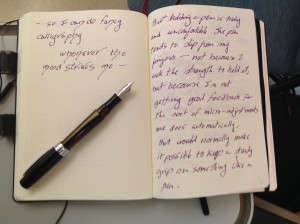 - so I can do fancy
calligraphy
whenever the
mood strikes me -
But holding a pen is tricky
and uncomfortable. The pen
tends to slip from my
fingers - not because I
lack the strength to hold it,
but because I'm not
getting good feedback for
the sort of micro-adjustments
one does automatically.
that would normally make
it possible to keep a steady
grip on something like a
pen.